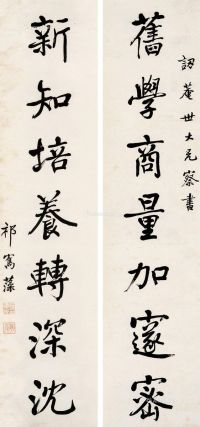 舊學商量加邃密
訒菴世大兄察書
新知培養轉深沈
祁寯藻